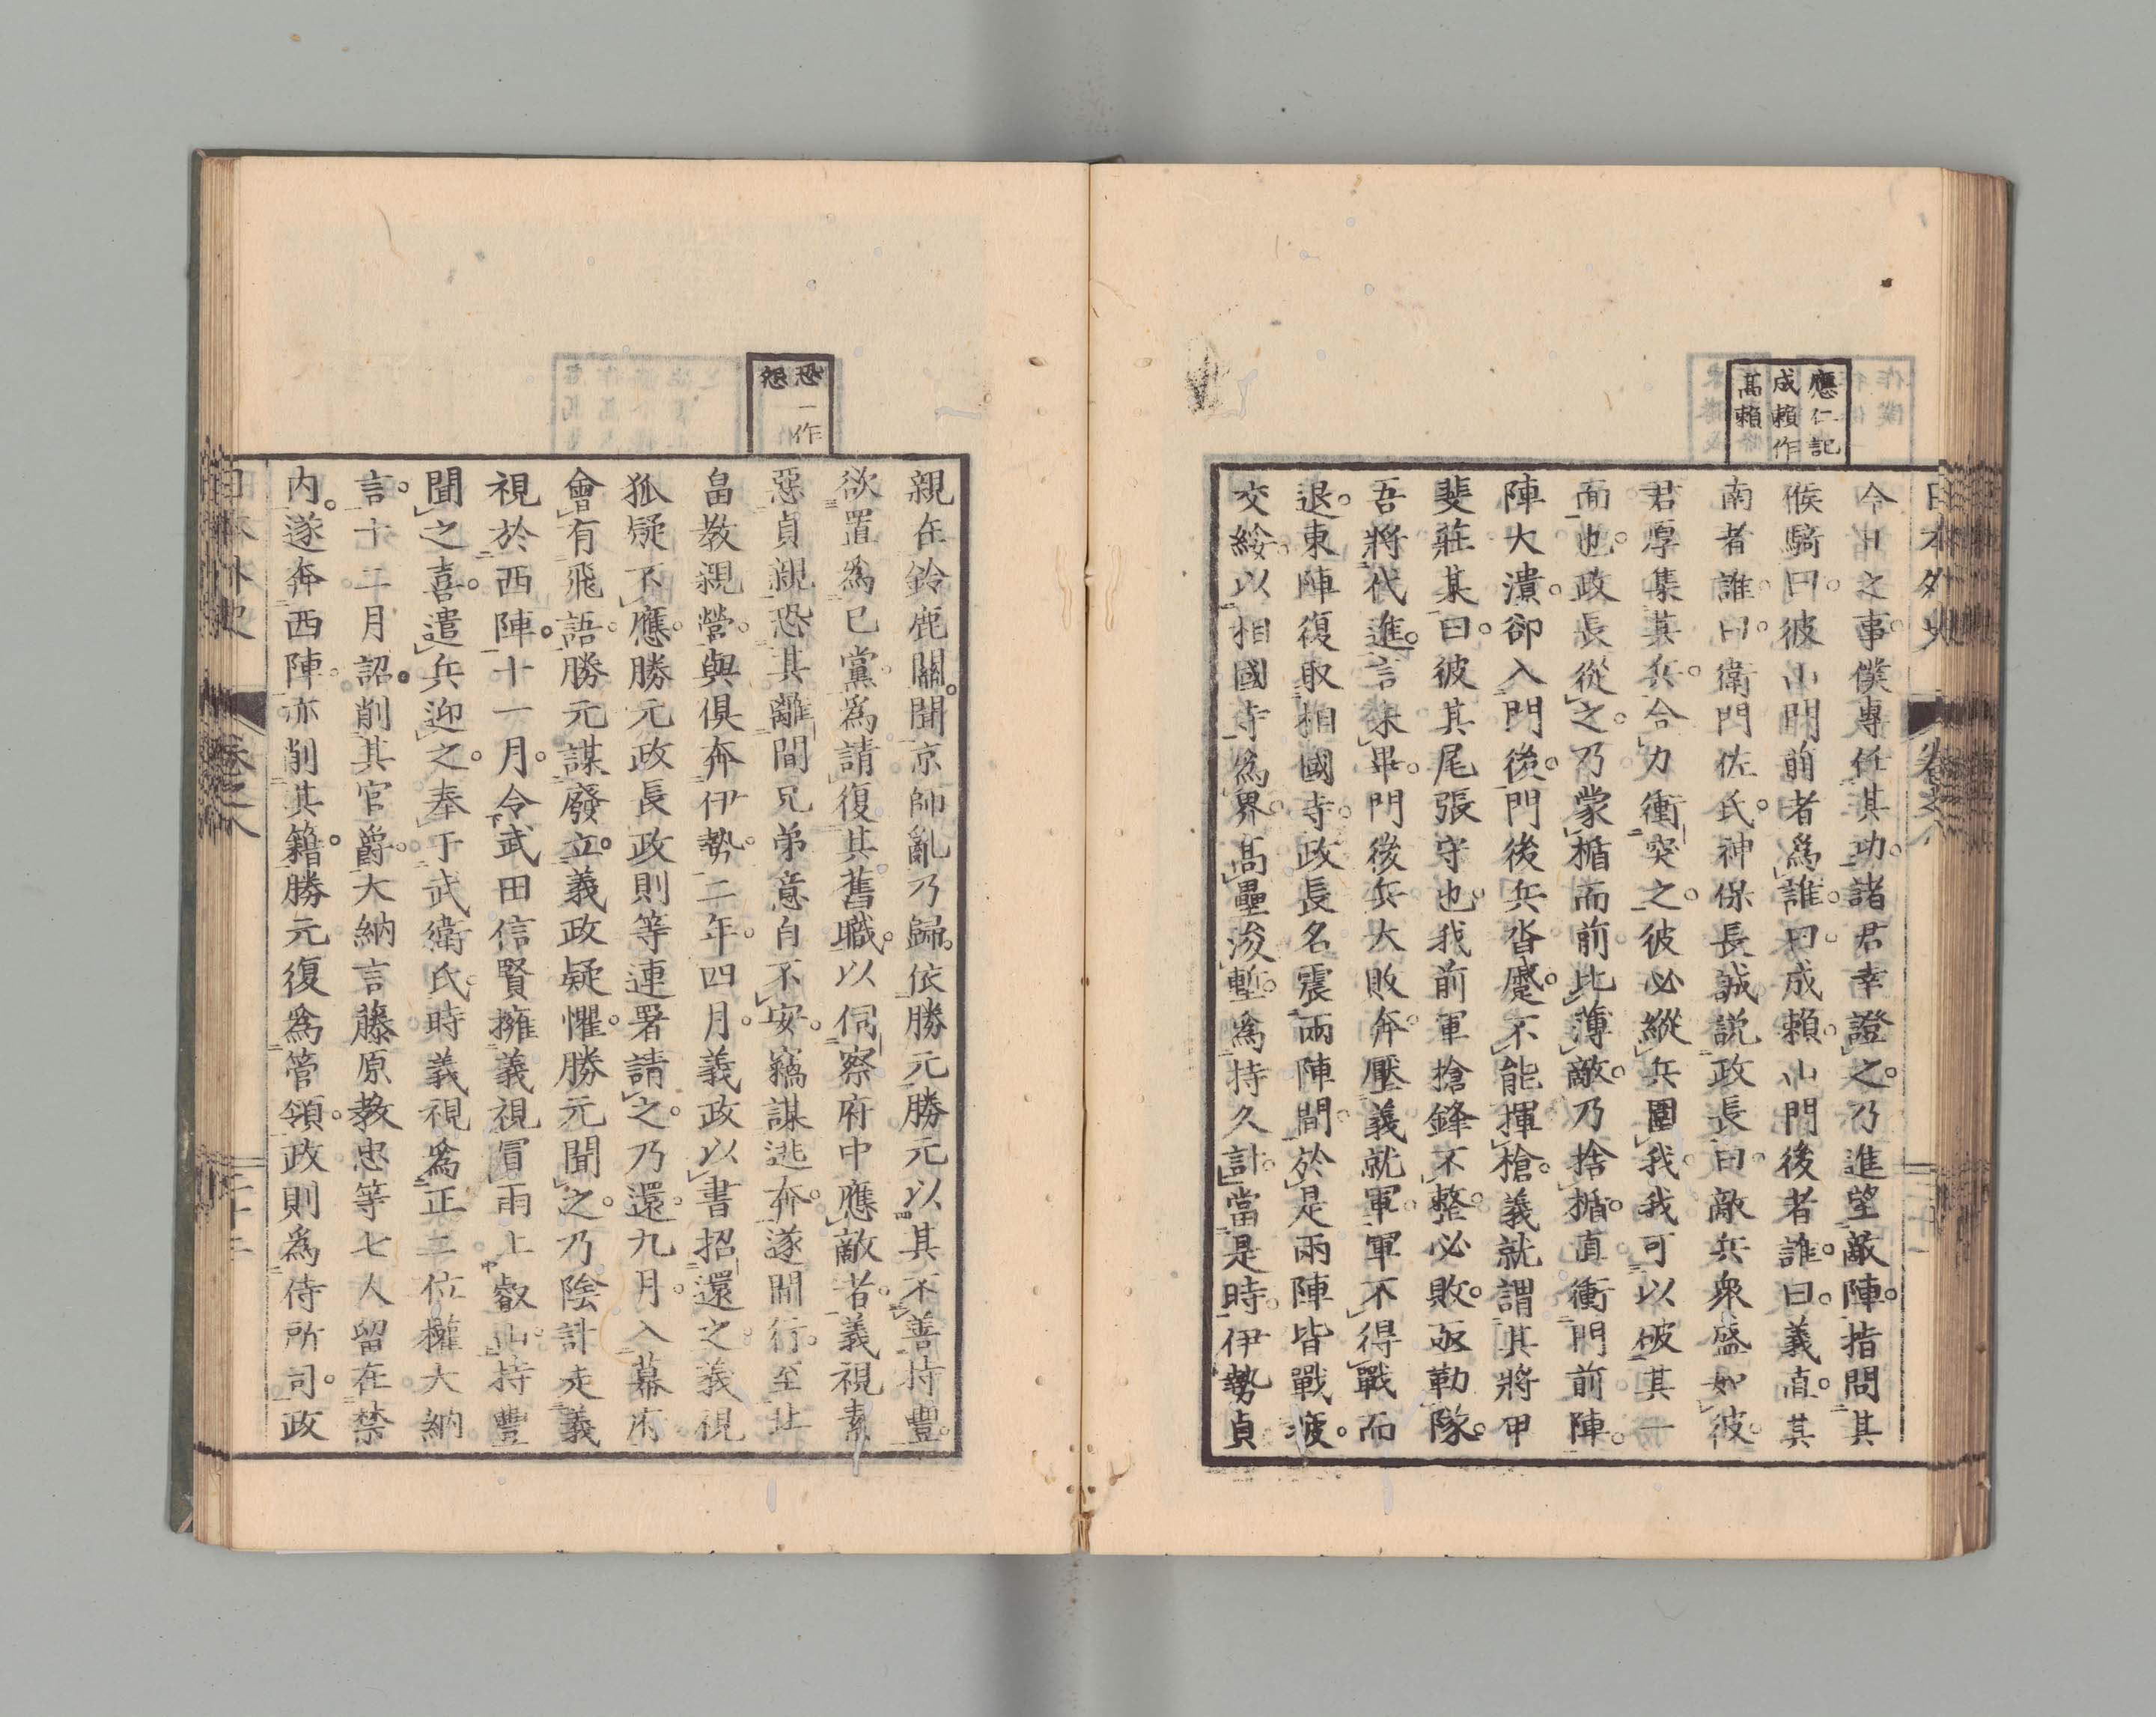 應仁記
成賴作
高賴
今日之事。僕專任其功。諸君幸證之。乃進望敵陣。指問其
候騎曰。彼山門前者爲誰。曰。成賴。山門後者誰。曰。義直。其
南者誰。曰。衛門佐氏。神保長誠説政長曰。敵兵衆盛如彼。
君厚集其兵。合力衝突之。彼必縱兵圍我。我可以破其一
面也。政長從之。乃蒙楯而前。比薄敵。乃捨楯直衝門前陣。
陣大潰。卻入門後。門後兵沓蹙。不能揮槍。義就謂其將甲
斐莊某曰。彼其尾張守也。我前軍槍鋒不整。必敗。亟勒隊。
吾將代進。言未畢。門後兵大敗。奔壓義就軍。軍不得戰而
退。東陣復取相國寺。政長名震兩陣間。於是兩陣皆戰疲。
交綏。以相國寺爲界。高壘浚塹。爲持久計。當是時。伊勢貞
恐一作
怨
親在鈴鹿關。聞京師亂乃歸。依勝元。勝元以其不善持豐。
欲置爲己黨。爲請復其舊職。以伺察府中應敵者。義視素
惡貞親。恐其離間兄弟。意自不安。竊謀逃奔。遂間行。至北
畠教親營。與俱奔伊勢。二年。四月。義政以書招還之。義視
狐疑不應。勝元政長政則等連署請之。乃還。九月。入幕府。
會有飛語。勝元謀廢立。義政疑懼。勝元聞之。乃陰計走義
視於西陣。十一月。令武田信賢擁義視。冒雨上叡山。持豐
聞之喜。遣兵迎之。奉于武衛氏。時義視爲正二位權大納
言。十二月。詔削其官爵。大納言藤原教忠等七人留在禁
内。遂奔西陣。亦削其籍。勝元復爲管領。政則爲侍所司。政
日本外史 卷之八 二十二